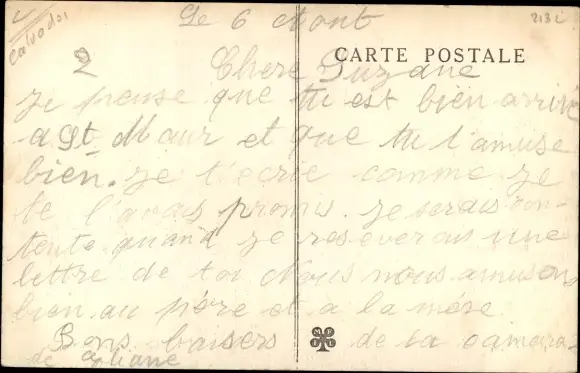 Calvados
Le 6 Aout
213 L
CARTE POSTALE
2
Chere Suzane
Je pense que tu est bien arrivé
a St Maur et que tu t'amuse
bien. Je t'ecrie comme je
te l'avais promis. Je serais con-
tente quand je reseverais une
lettre de toi Nous nous amusons
bien au père et a la mére.
Bons baisers de ta camara-
de